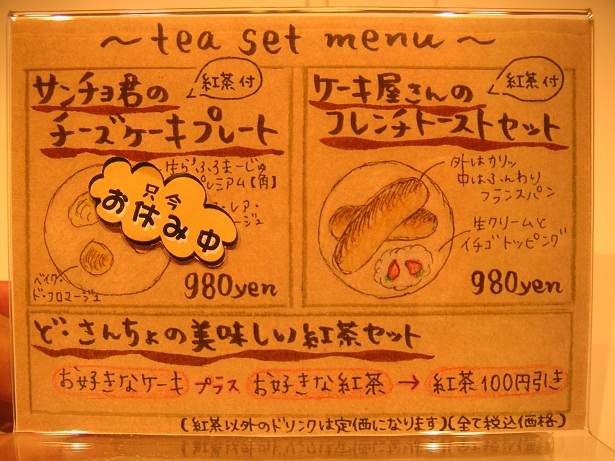 ～tea set menu～
サンチョ君の
紅茶付
チーズケーキプレート
生らふろまーじゅ
プレミアム【角】
只今
お休み中
レア・
ージュ
ベイク・
ド・フロマージュ
980yen
ケーキ屋さんの
紅茶付
フレンチトーストセット
外はカリッ
中はふんわり
フランスパン
生クリームと
イチゴトッピング
980yen
ど・さんちょの美味しい紅茶セット
お好きなケーキ プラス お好きな紅茶 → 紅茶100円引き
(紅茶以外のドリンクは定価になります)(全て税込価格)